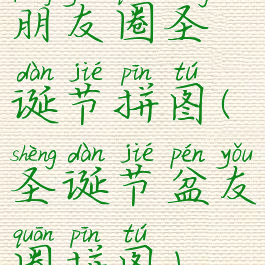 朋友圈圣
dàn jié pīn tú
诞节拼图(
shèng dàn jié pén yǒu
圣诞节盆友
quān pīn tú
圈拼图)